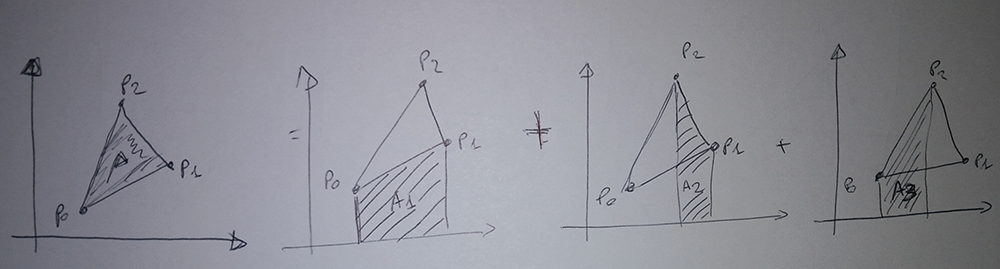 P2
A
P1
P0
=
P2
P1
P0
A1
+
P2
P1
A2
P0
+
P2
P1
P0
A3